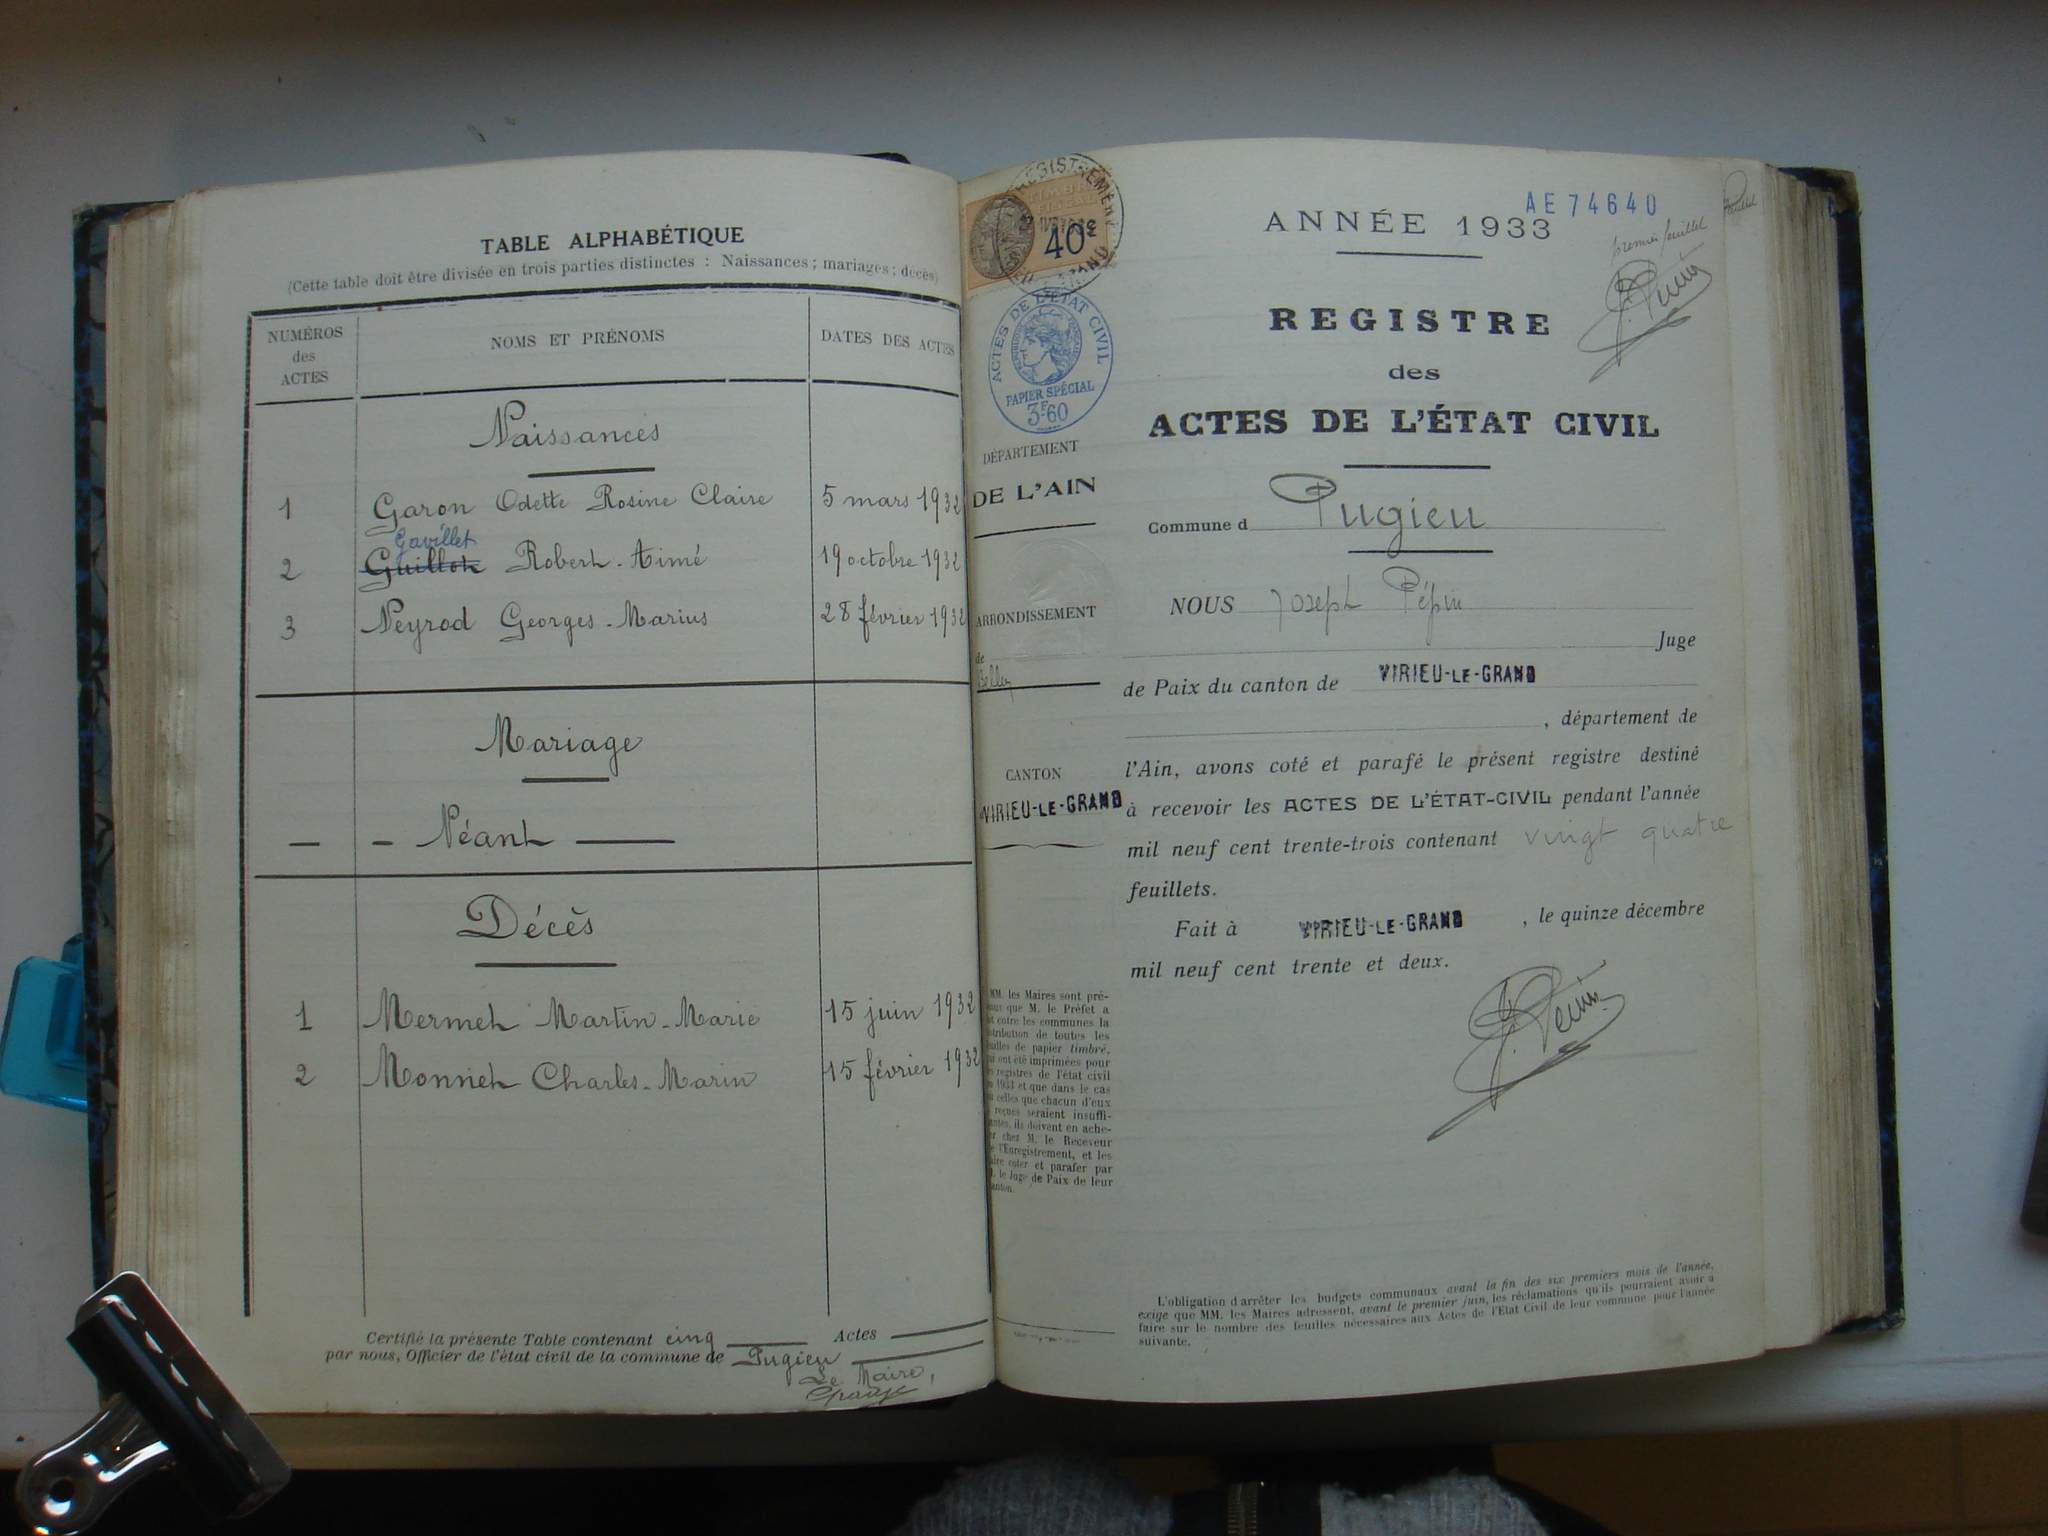 TABLE ALPHABÉTIQUE
(Cette table doit être divisée en trois parties distinctes : Naissances ; mariages ; décès)
NUMÉROS des ACTES
NOMS ET PRÉNOMS
DATES DES ACTES
Naissances
1 Garon Odette Rosine Claire 5 mars 1932
Gavillet
2 Guillot Robert-Aimé 19 octobre 1932
3 Neyrod Georges-Marius 28 février 1932
Mariage
— - Néant —
Décès
1 Mermet Martin-Marie 15 juin 1932
2 Monnet Charles-Marin 15 février 1932
Certifié la présente Table contenant cinq Actes
par nous, Officier de l'état civil de la commune de Pugieu
Le Maire,
TIMBRE FISCAL
40c
ACTES DE L'ÉTAT CIVIL
PAPIER SPÉCIAL
3F.60
DÉPARTEMENT
DE L'AIN
ARRONDISSEMENT
de
Belley
CANTON
VIRIEU-LE-GRAND
MM. les Maires sont pré-
que M. le Préfet a
entre les communes la
de toutes les
de papier timbré,
ont été imprimées pour
registres de l'état civil
1933 et que dans le cas
celles que chacun d'eux
reçues seraient insuffi-
ils doivent en ache-
chez M. le Receveur
l'Enregistrement, et les
coter et parafer par
le Juge de Paix de leur
AE 74640
ANNÉE 1933
premier feuillet
REGISTRE
des
ACTES DE L'ÉTAT CIVIL
Commune d Pugieu
NOUS Joseph Pépin
Juge
de Paix du canton de VIRIEU-LE-GRAND
, département de
l'Ain, avons coté et parafé le présent registre destiné
à recevoir les ACTES DE L'ÉTAT-CIVIL pendant l'année
mil neuf cent trente-trois contenant vingt quatre
feuillets.
Fait à VIRIEU-LE-GRAND , le quinze décembre
mil neuf cent trente et deux.
L'obligation d'arrêter les budgets communaux avant la fin des six premiers mois de l'année,
exige que MM. les Maires adressent, avant le premier juin, les réclamations qu'ils pourraient avoir à
faire sur le nombre des feuilles nécessaires aux Actes de l'Etat Civil de leur commune pour l'année
suivante.